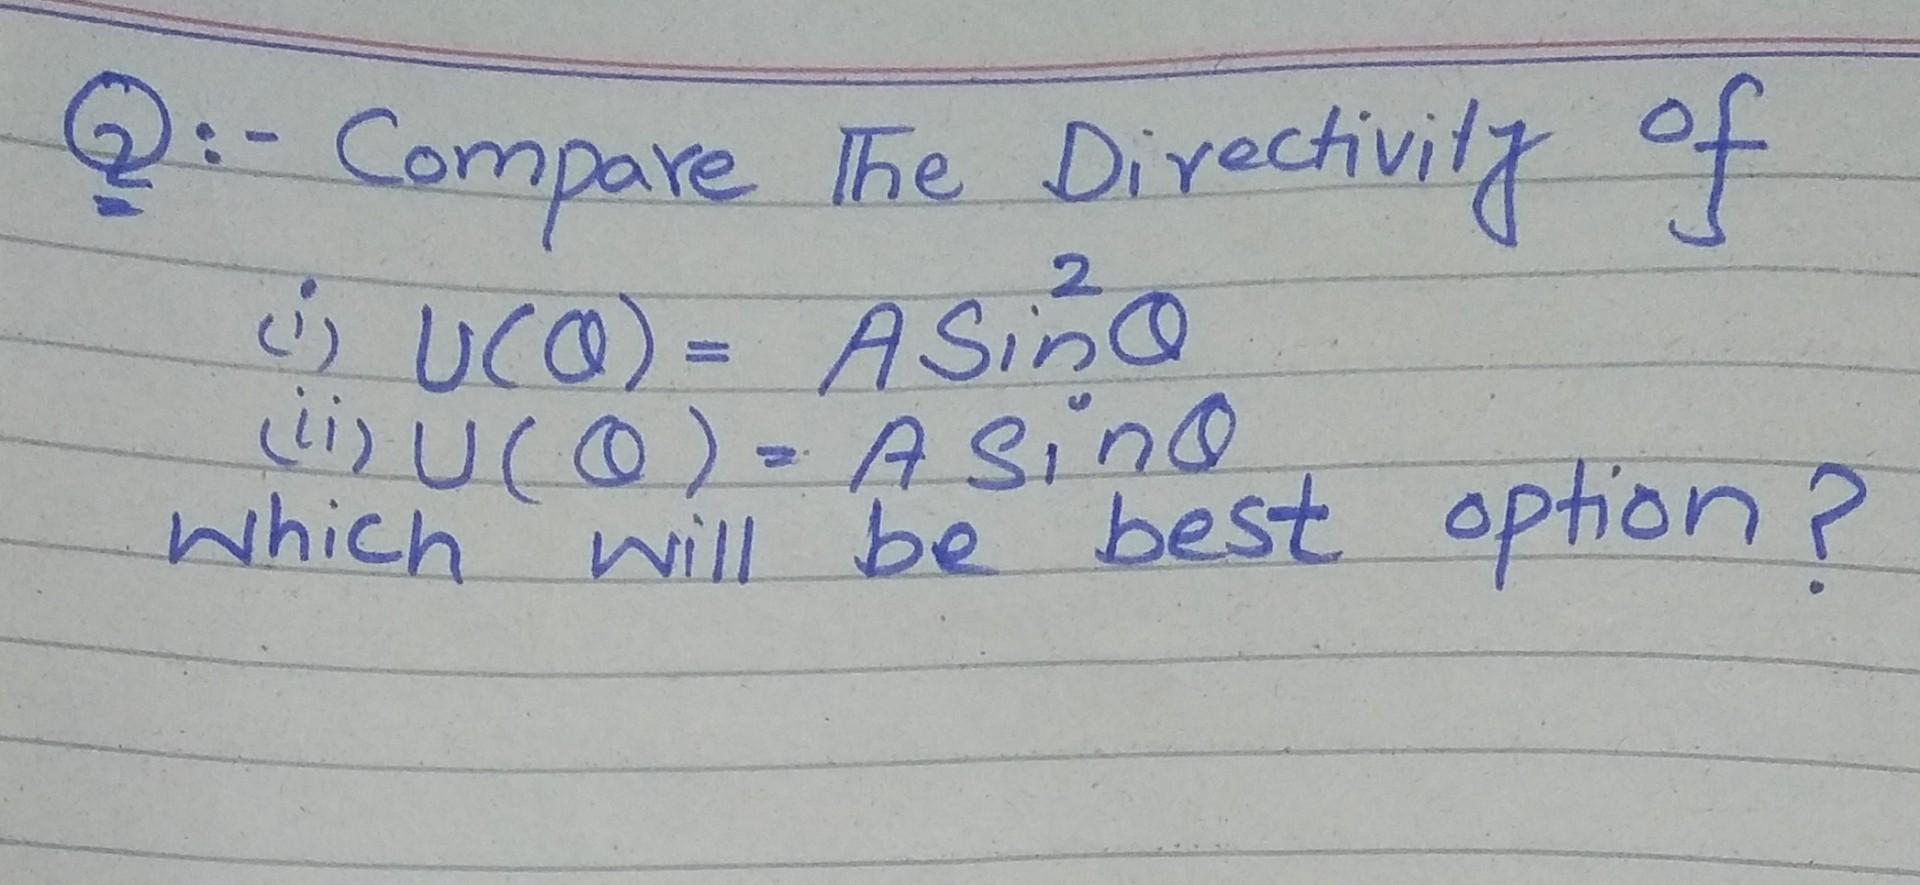 Q:- Compare The Directivity of
(i) U(θ) = A Sin²θ
(ii) U(θ) = A Sinθ
which will be best option?